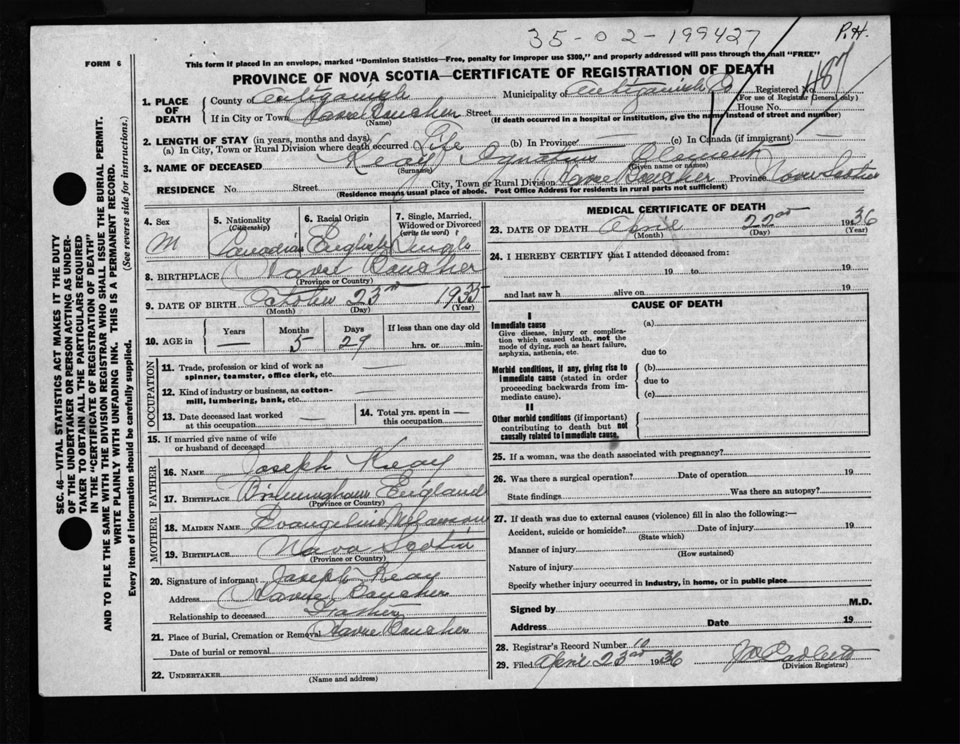 35-02-199427
P.H.
FORM 6
This form if placed in an envelope, marked "Dominion Statistics—Free, penalty for improper use $300," and properly addressed will pass through the mail "FREE"
PROVINCE OF NOVA SCOTIA—CERTIFICATE OF REGISTRATION OF DEATH
1. PLACE OF DEATH
County of Antigonish Municipality of Antigonish Co Registered No. 487
(For use of Registrar General only)
If in City or Town Havre Boucher Street House No.
(Name) (If death occurred in a hospital or institution, give the name instead of street and number)
2. LENGTH OF STAY (in years, months and days)
(a) In City, Town or Rural Division where death occurred Life (b) In Province (c) In Canada (if immigrant)
3. NAME OF DECEASED Keay Ignatius Clement
(Surname) (Given name or names)
RESIDENCE No Street City, Town or Rural Division Havre Boucher Province Nova Scotia
(Residence means usual place of abode. Post Office Address for residents in rural parts not sufficient)
4. Sex M
5. Nationality (Citizenship) Canadian
6. Racial Origin English
7. Single, Married, Widowed or Divorced (write the word) Single
8. BIRTHPLACE Havre Boucher
(Province or Country)
9. DATE OF BIRTH October 23rd 1935
(Month) (Day) (Year)
10. AGE in
Years Months Days If less than one day old
— 5 29 hrs. or min.
OCCUPATION
11. Trade, profession or kind of work as spinner, teamster, office clerk, etc.
12. Kind of industry or business, as cotton-mill, lumbering, bank, etc.
13. Date deceased last worked at this occupation —
14. Total yrs. spent in this occupation —
15. If married give name of wife or husband of deceased
FATHER
16. NAME Joseph Keay
17. BIRTHPLACE Birmingham England
(Province or Country)
MOTHER
18. MAIDEN NAME Evangeline
19. BIRTHPLACE Nova Scotia
(Province or Country)
20. Signature of informant Joseph Keay
Address Havre Boucher
Relationship to deceased Father
21. Place of Burial, Cremation or Removal Havre Boucher
Date of burial or removal
22. UNDERTAKER
(Name and address)
MEDICAL CERTIFICATE OF DEATH
23. DATE OF DEATH April 22nd 1936
(Month) (Day) (Year)
24. I HEREBY CERTIFY that I attended deceased from:
19 to 19
and last saw h alive on 19
CAUSE OF DEATH
I
Immediate cause
Give disease, injury or complication which caused death, not the mode of dying, such as heart failure, asphyxia, asthenia, etc.
(a)
due to
Morbid conditions, if any, giving rise to immediate cause (stated in order proceeding backwards from immediate cause).
(b)
due to
(c)
II
Other morbid conditions (if important) contributing to death but not causally related to immediate cause.
25. If a woman, was the death associated with pregnancy?
26. Was there a surgical operation? Date of operation 19
State findings Was there an autopsy?
27. If death was due to external causes (violence) fill in also the following:—
Accident, suicide or homicide? Date of injury 19
(State which)
Manner of injury
(How sustained)
Nature of injury
Specify whether injury occurred in industry, in home, or in public place
Signed by M.D.
Address Date 19
28. Registrar's Record Number 10
29. Filed April 23rd 1936
(Division Registrar)
SEC. 46—VITAL STATISTICS ACT MAKES IT THE DUTY
OF THE UNDERTAKER OR PERSON ACTING AS UNDER-
TAKER TO OBTAIN ALL THE PARTICULARS REQUIRED
IN THE "CERTIFICATE OF REGISTRATION OF DEATH"
AND TO FILE THE SAME WITH THE DIVISION REGISTRAR WHO SHALL ISSUE THE BURIAL PERMIT.
WRITE PLAINLY WITH UNFADING INK. THIS IS A PERMANENT RECORD.
Every item of information should be carefully supplied. (See reverse side for instructions.)